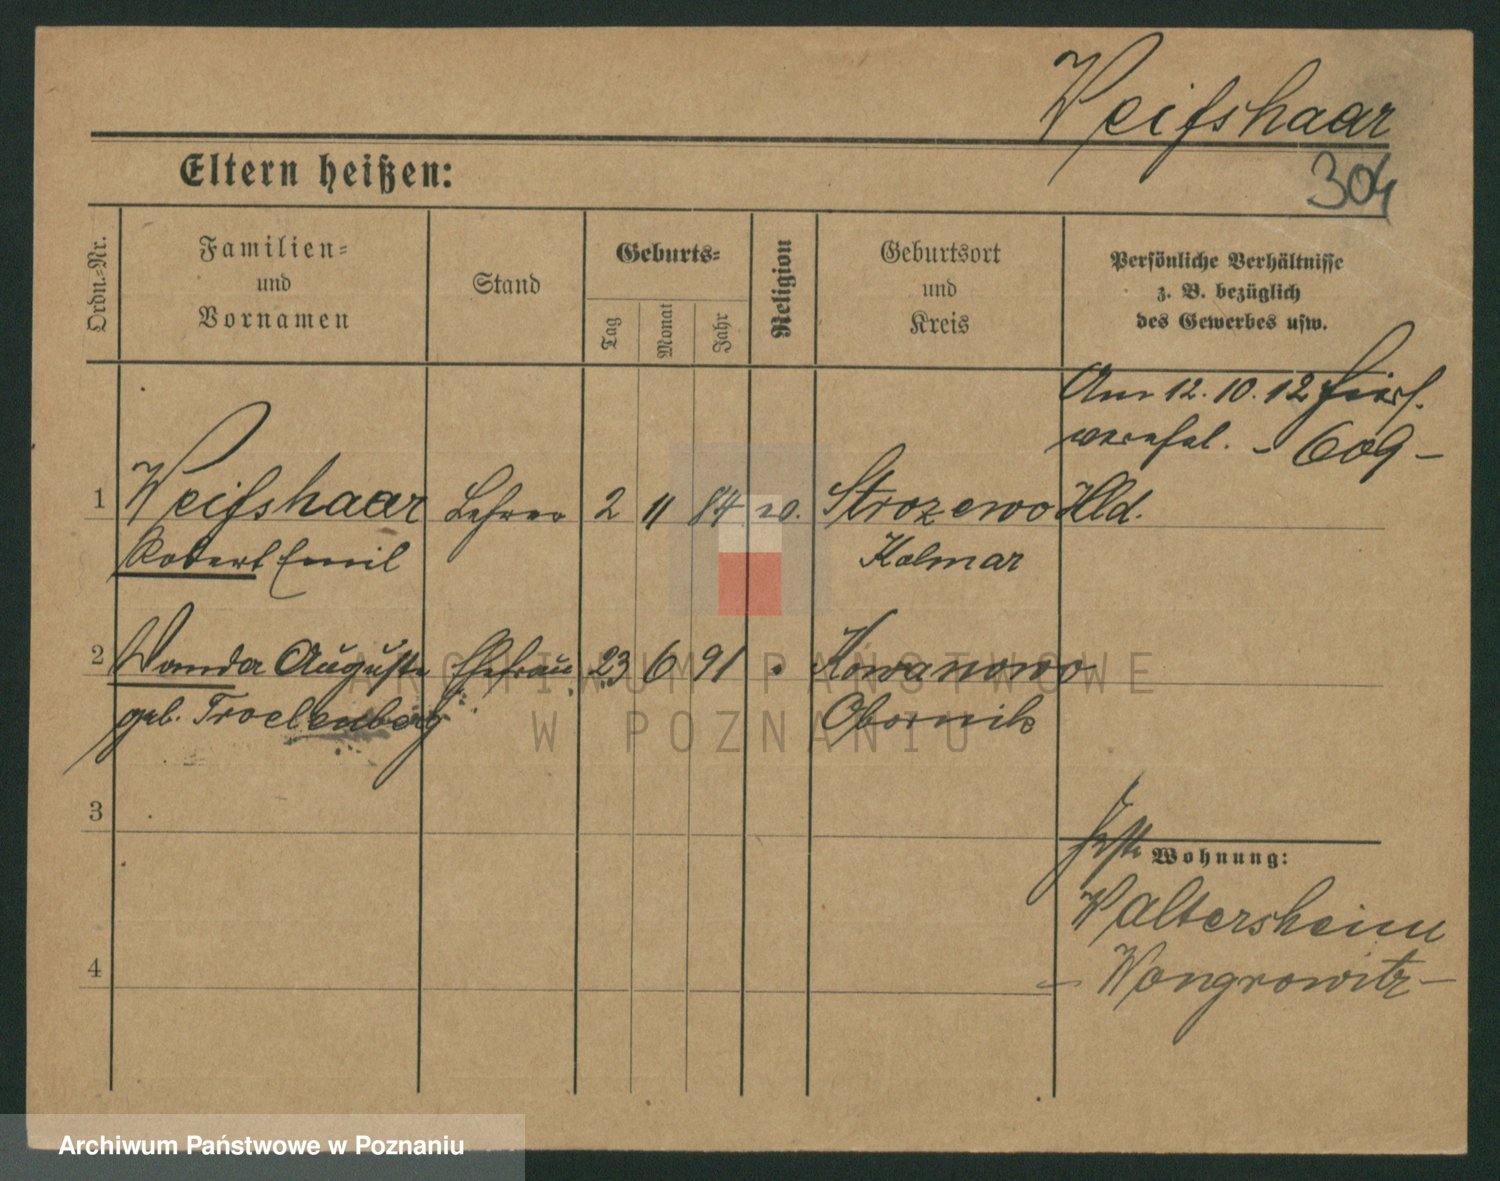 Weifshaar
304
Eltern heißen:
Ordn.-Nr.
Familien-
und
Vornamen
Stand
Geburts-
Tag
Monat
Jahr
Religion
Geburtsort
und
Kreis
Persönliche Verhältnisse
z. B. bezüglich
des Gewerbes usw.
Am 12.10.12 hier
verehel. - 609 -
1 Weifshaar Lehrer 2 11 84 Strozewo Hld.
Robert Emil Kolmar
2 Wanda Auguste Ehefrau 23 6 91 Kowanowo
geb. Troelenberg Obornik
3
Wohnung:
Waltersheim
4
- Wongrowitz -
ARCHIWUM PAŃSTWOWE
W POZNANIU
Archiwum Państwowe w Poznaniu